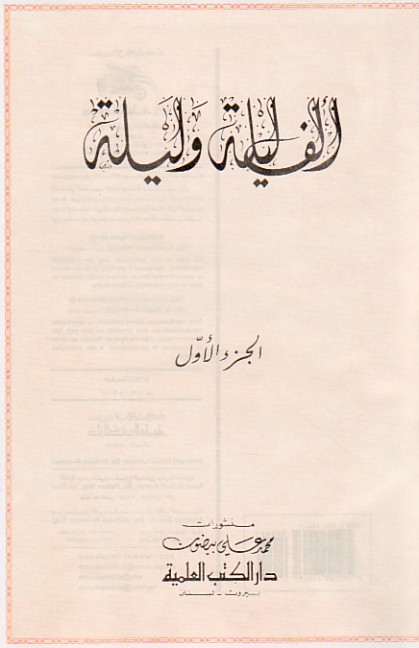 ألف ليلة وليلة
الجزء الأوّل
منشورات
محمد علي بيضون
دار الكتب العلمية
بيروت - لبنان